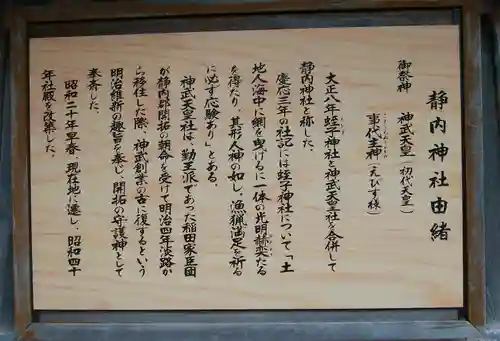 静内神社由緒
御祭神
神武天皇(初代天皇)
事代主神(えびす様)
大正八年蛭子神社と神武天皇社を合併して
静内神社と称した。
慶応三年の社記には蛭子神社について「土
地人海中に網を曳けるに一体の光明赫奕たる
を得たり、其形人神の如し、漁猟満足を祈る
に必ず応験あり」とある。
神武天皇社は、勤王派であった稲田家臣団
が静内郡開拓の朝命を受けて明治四年淡路か
ら移住した際、神武創業の古に復するという
明治維新の趣旨を奉じ、開拓の守護神として
奉斎した。
昭和二十年早春、現在地に遷し、昭和四十
年社殿を改築した。